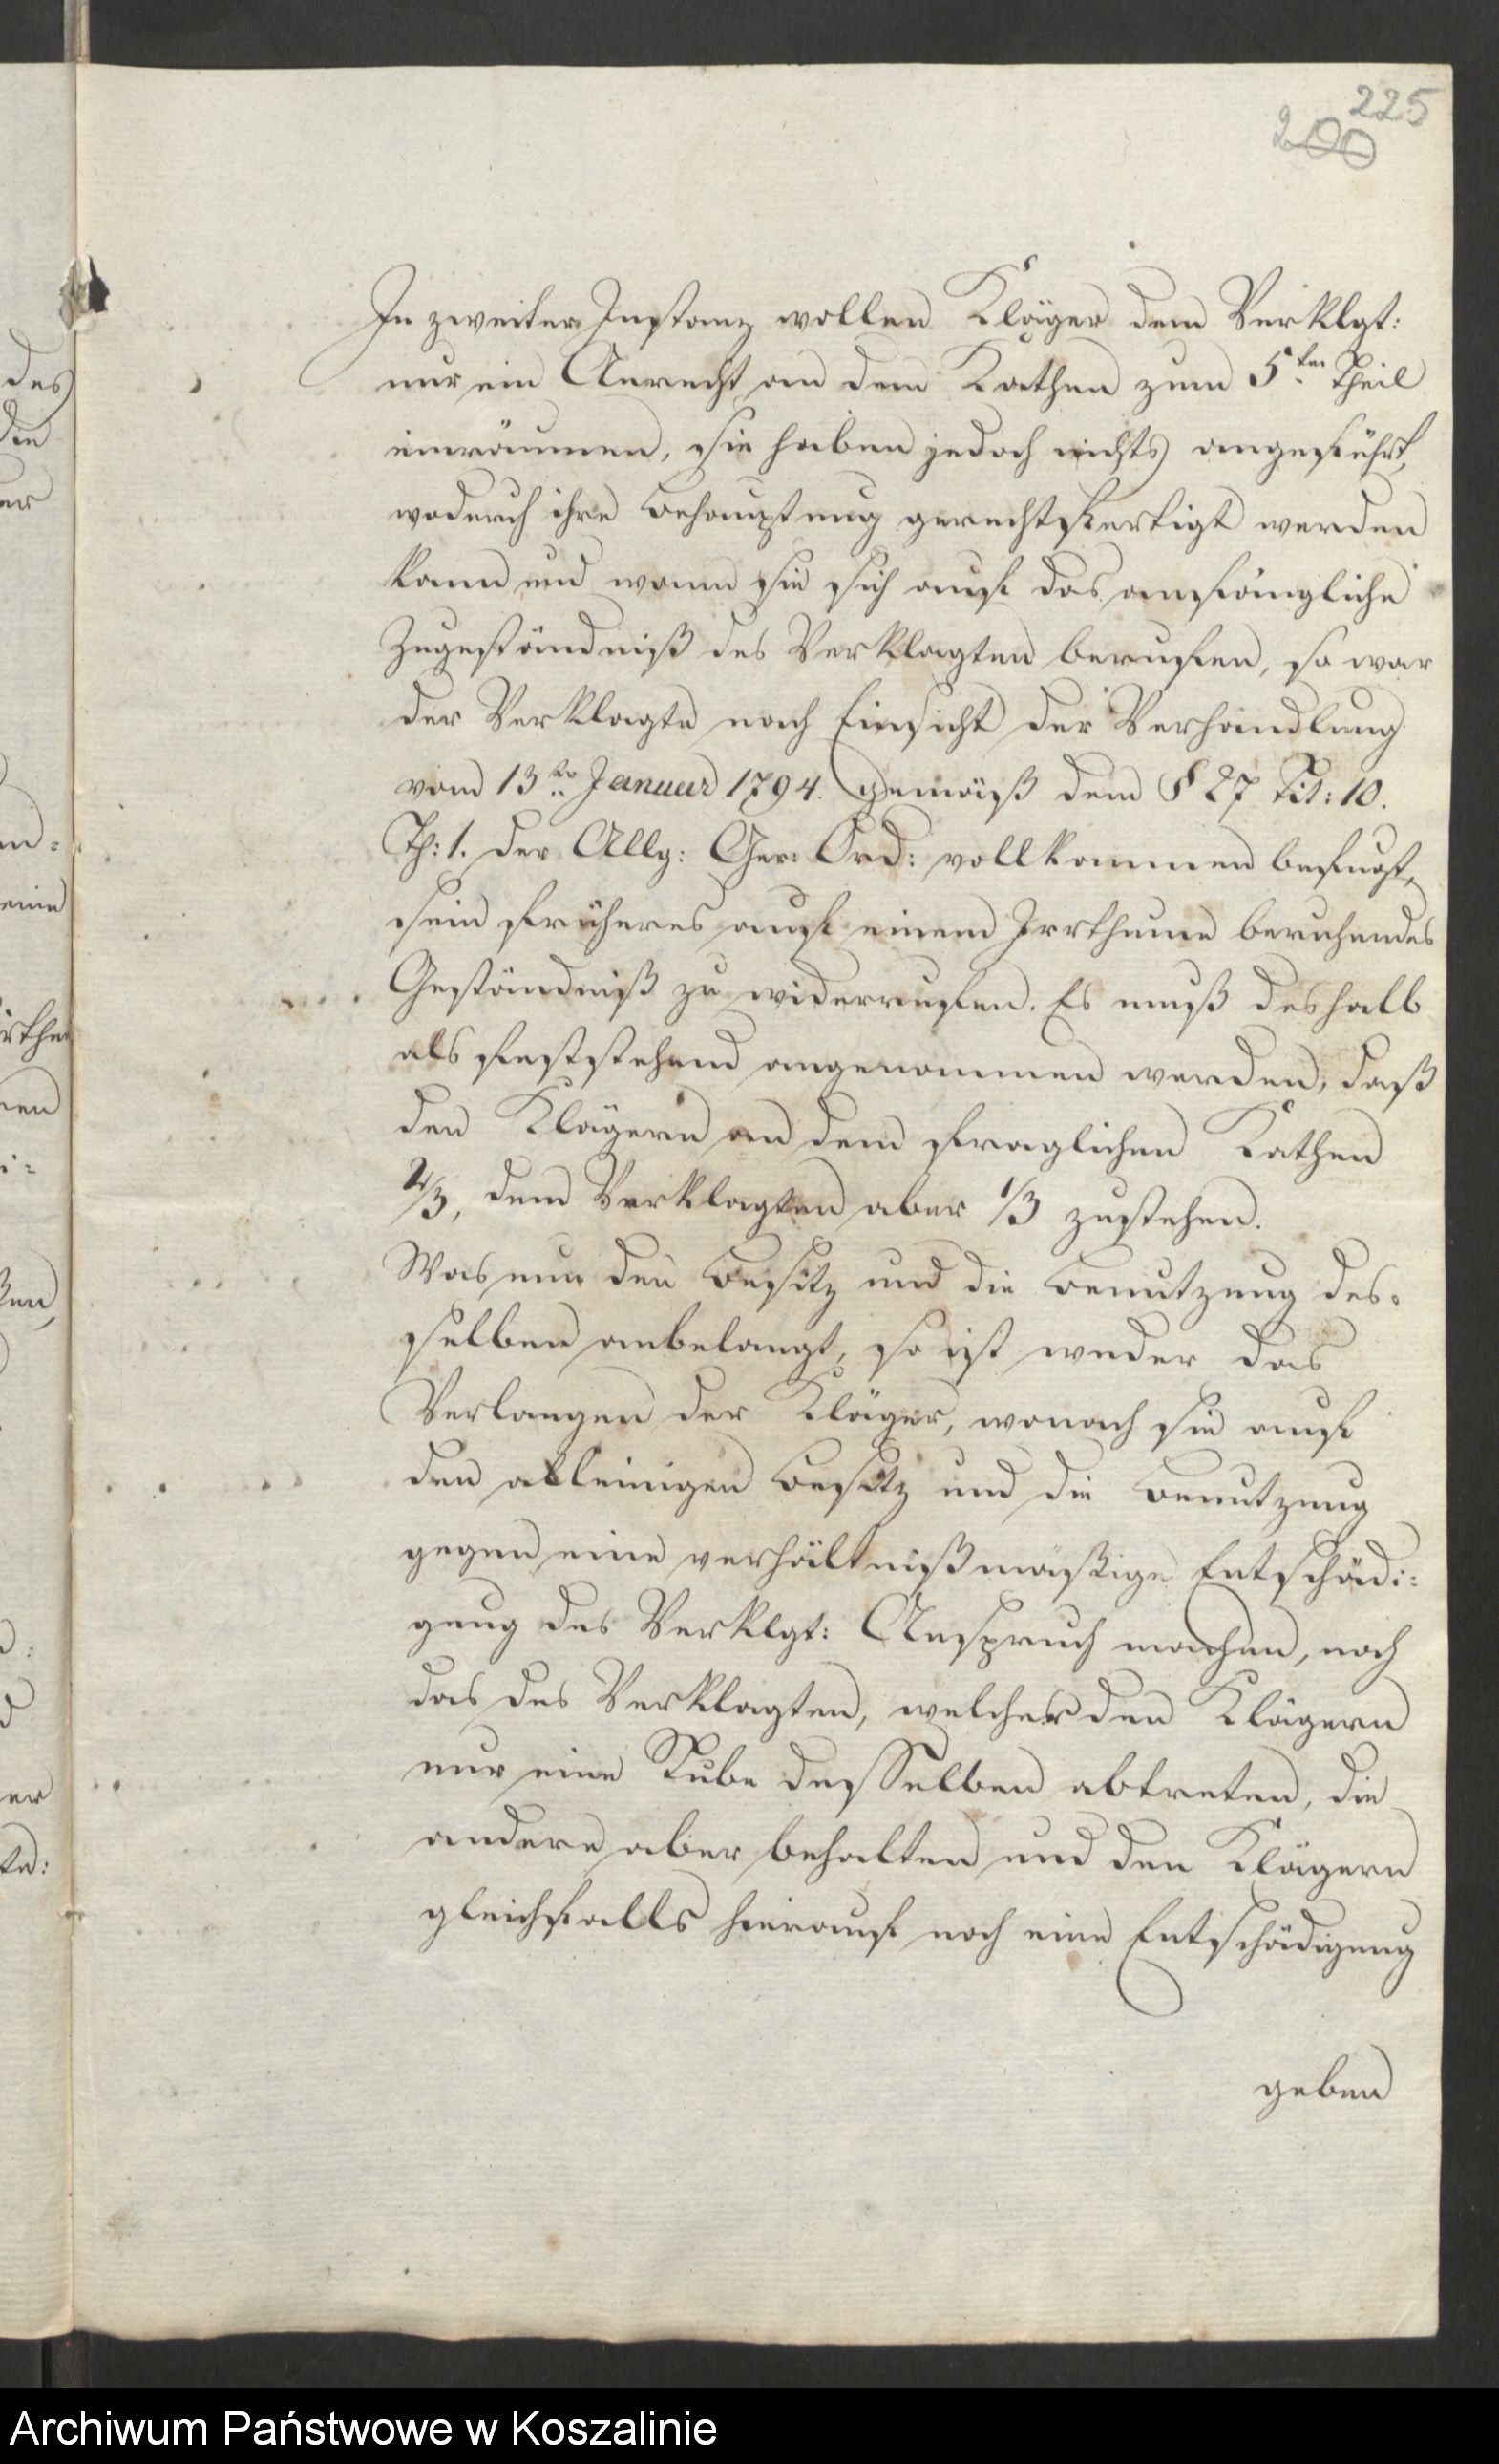 225
200
In zweiter Instanz wollen Kläger dem Verklgt:
nur ein Anrecht an dem Kathen zum 5ten Theil
einräumen, sie haben jedoch nichts angeführt,
wodurch ihre Behauptung gerechtfertigt werden
kann und wenn sie sich auf das anfängliche
Zugeständniß des Verklagten berufen, so war
der Verklagte nach Einsicht der Verhandlung
vom 13ten Januar 1794. gemäß dem § 27 Tit: 10.
Th: 1. der Allg: Ger: Ord: vollkommen befugt,
sein früheres auf einem Irrthume beruhendes
Geständniß zu widerrufen. Es muß deshalb
als feststehend angenommen werden, daß
den Klägern an dem fraglichen Kathen
2/3, dem Verklagten aber 1/3 zustehen.
Was nun den Besitz und die Benutzung des-
selben anbelangt, so ist weder das
Verlangen der Kläger, wonach sie auf
den alleinigen Besitz und die Benutzung
gegen eine verhältnißmäßige Entschädi:
gung des Verklgt: Anspruch machen, noch
das des Verklagten, welcher den Klägern
nur eine Stube desselben abtreten, die
andere aber behalten und den Klägern
gleichfalls hierauf noch eine Entschädigung
geben
des
die
er
en:
eine
rthei
nen
i:
ßen,
er
te:
Archiwum Państwowe w Koszalinie